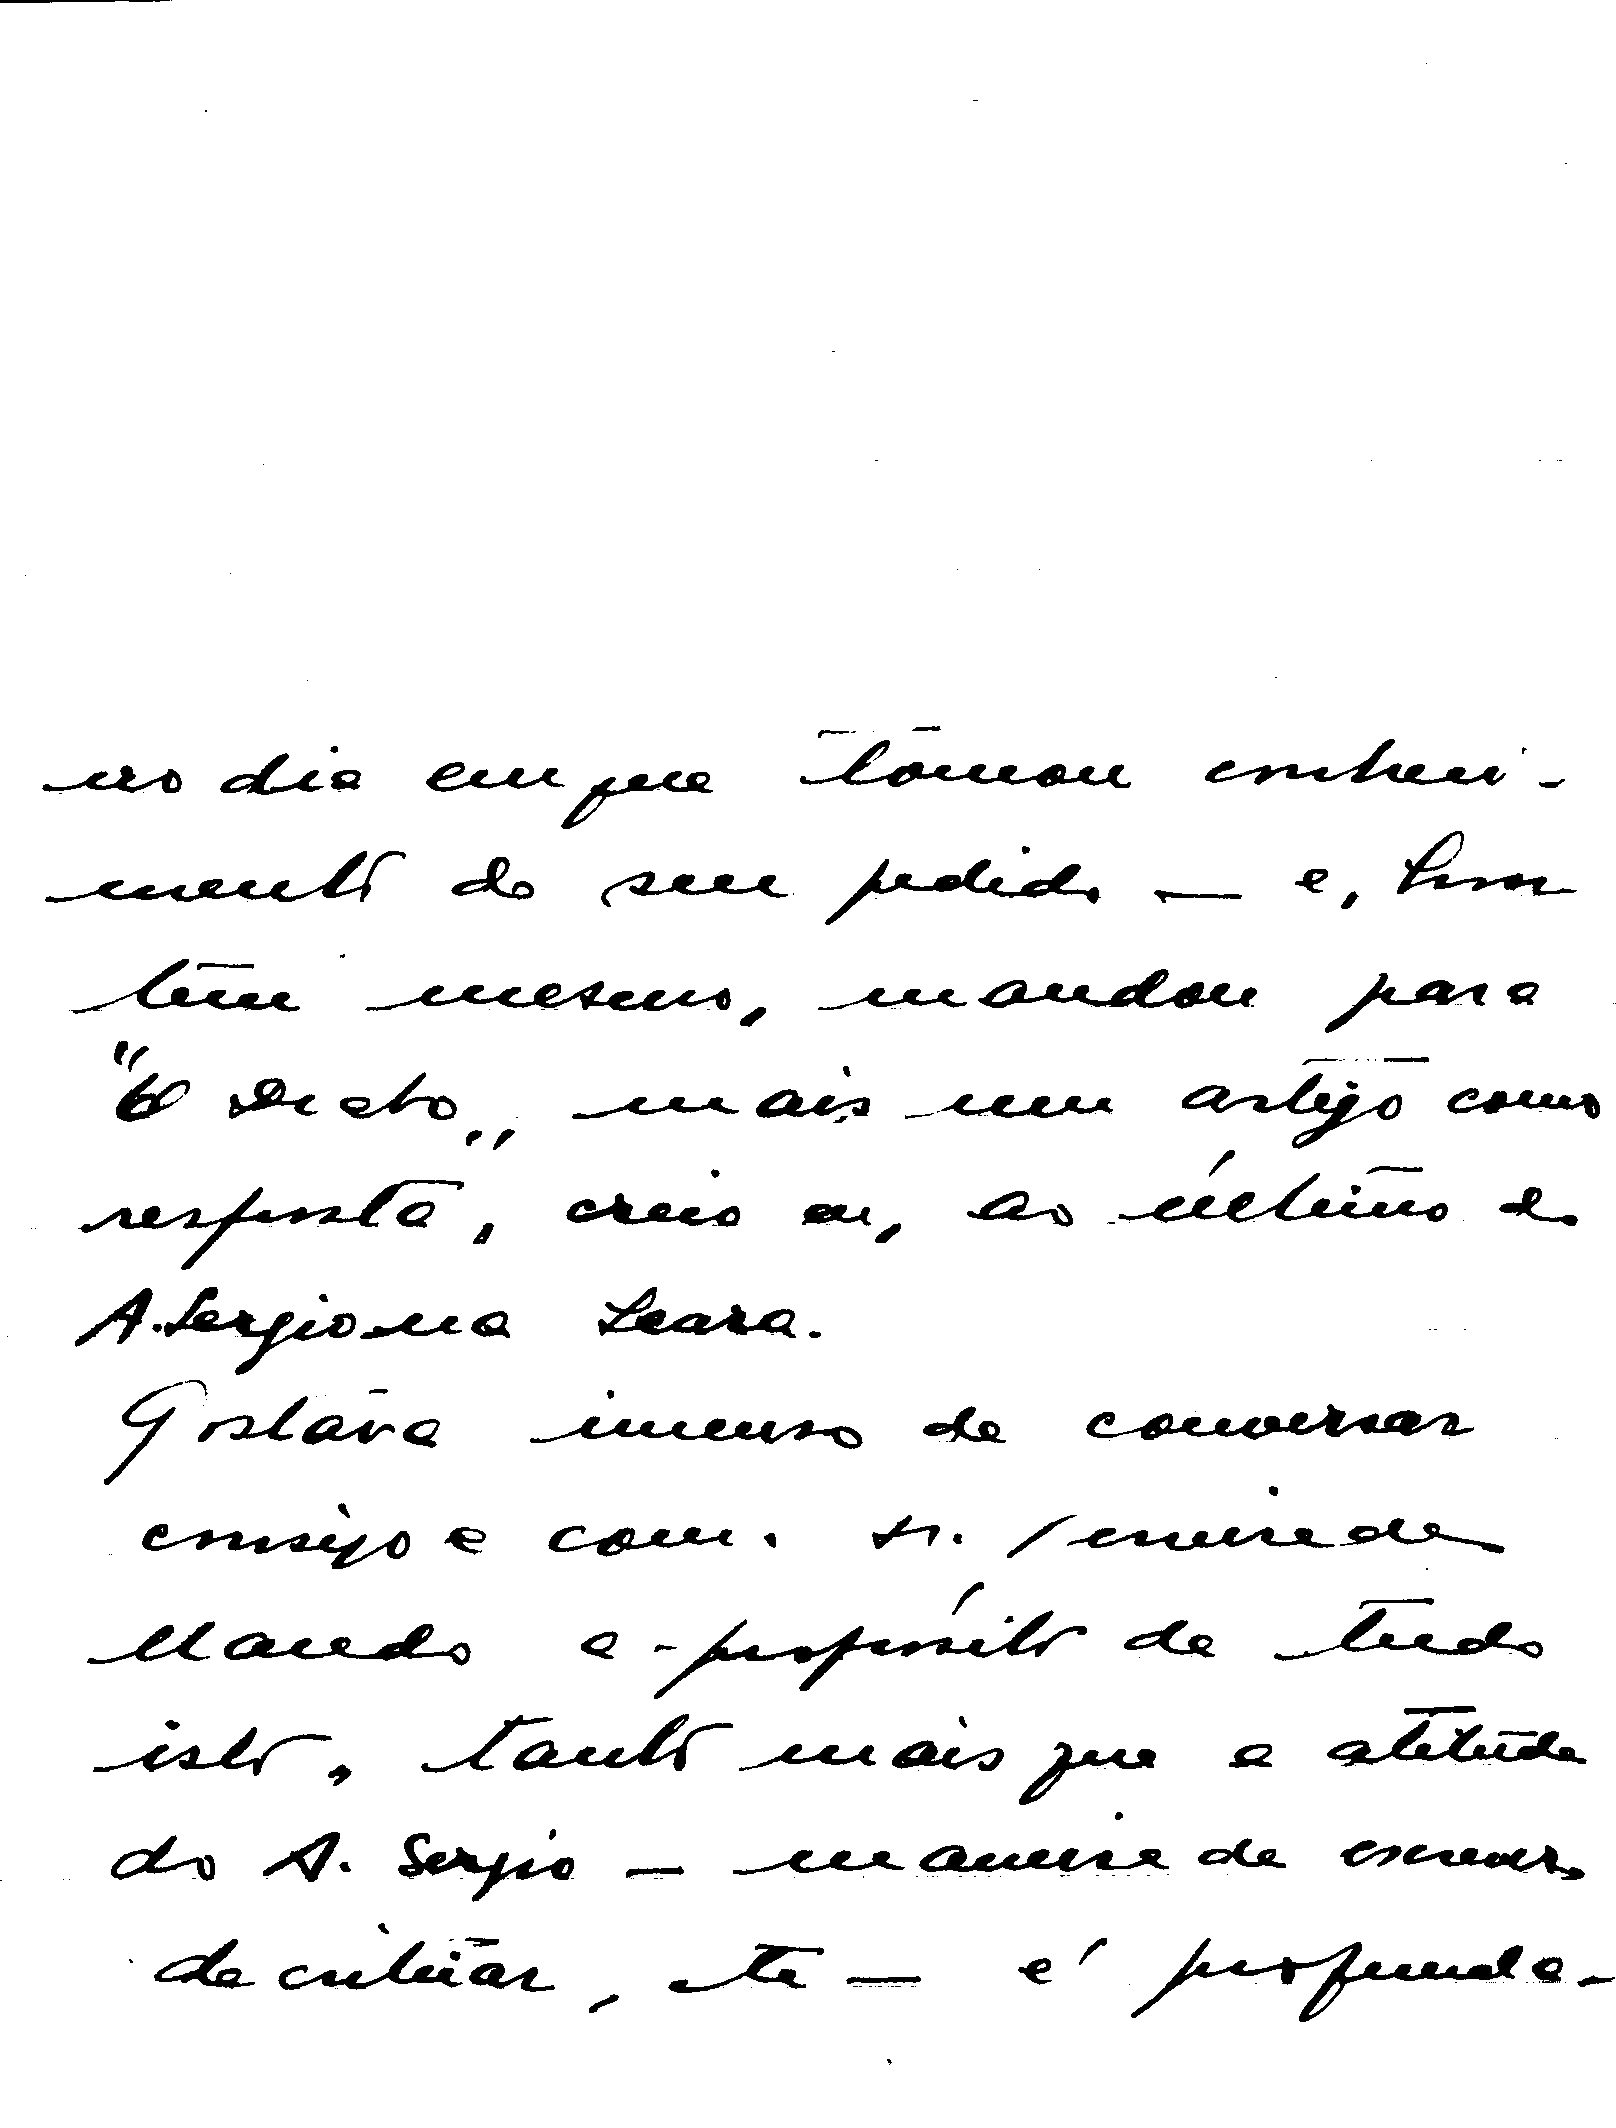 no dia em que tomou conheci-
mento do seu pedido — e, hon
tem mesmo, mandou para
"O Diabo", mais um artigo como
resposta, creio eu, ao último do
A. Sergio na Seara.
Gostava imenso de conversar
consigo e com . sr.
Mando a-propósito de tudo
isto, tanto mais que a atitude
do A. Sergio — maneira de escrever,
de criticar, etc — é profunda-